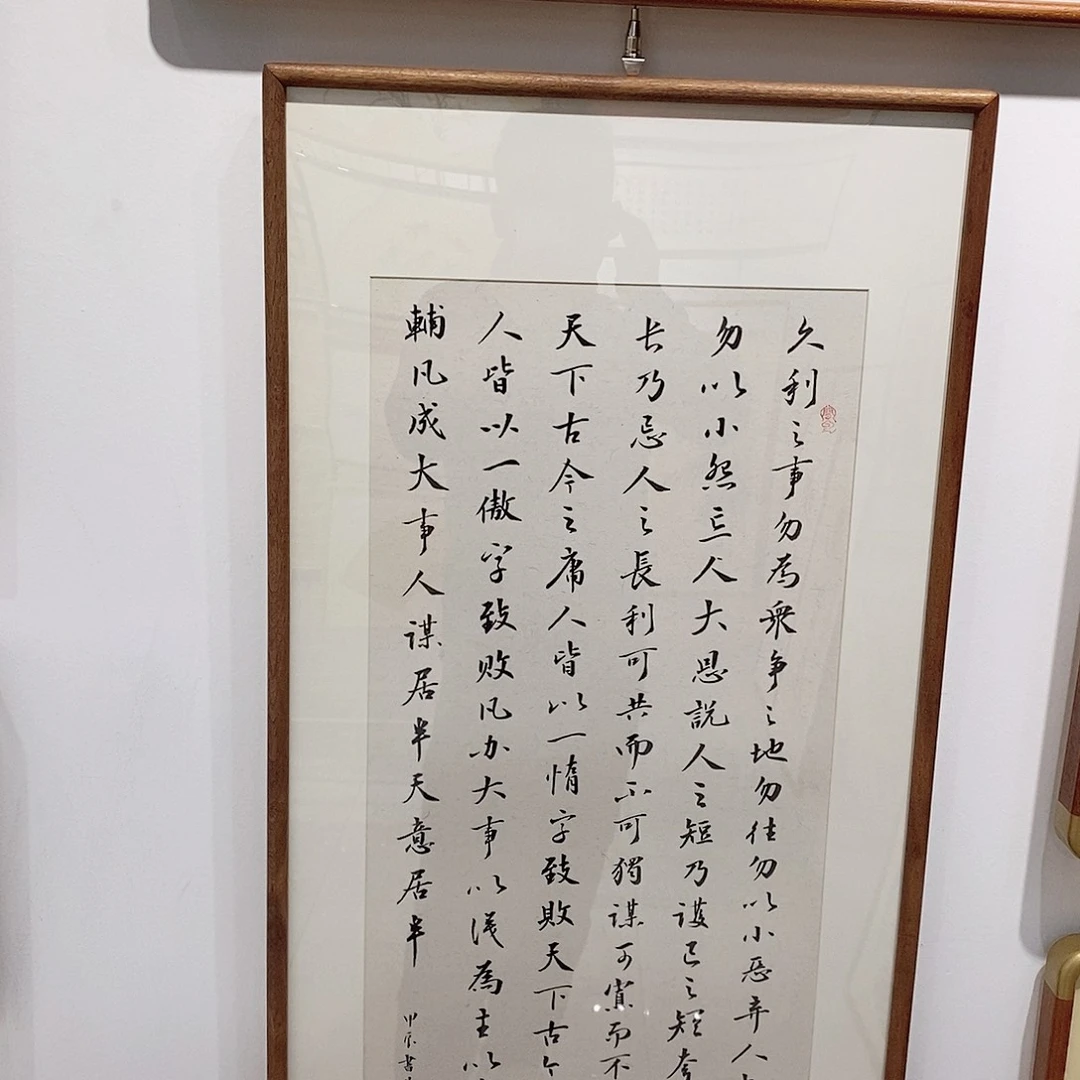 久利之事勿為衆争之地勿往勿以小惡弃人
勿以小怨忘人大恩説人之短乃護己之短夸
长乃忌人之長利可共而不可獨謀可寡而不
天下古今之庸人皆以一惰字致敗天下古今
人皆以一傲字致败凡办大事以識為主以
輔凡成大事人謀居半天意居半
甲辰書